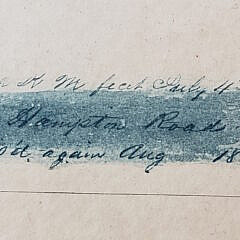 K M feet July 4
Hampton Road
again Aug 18